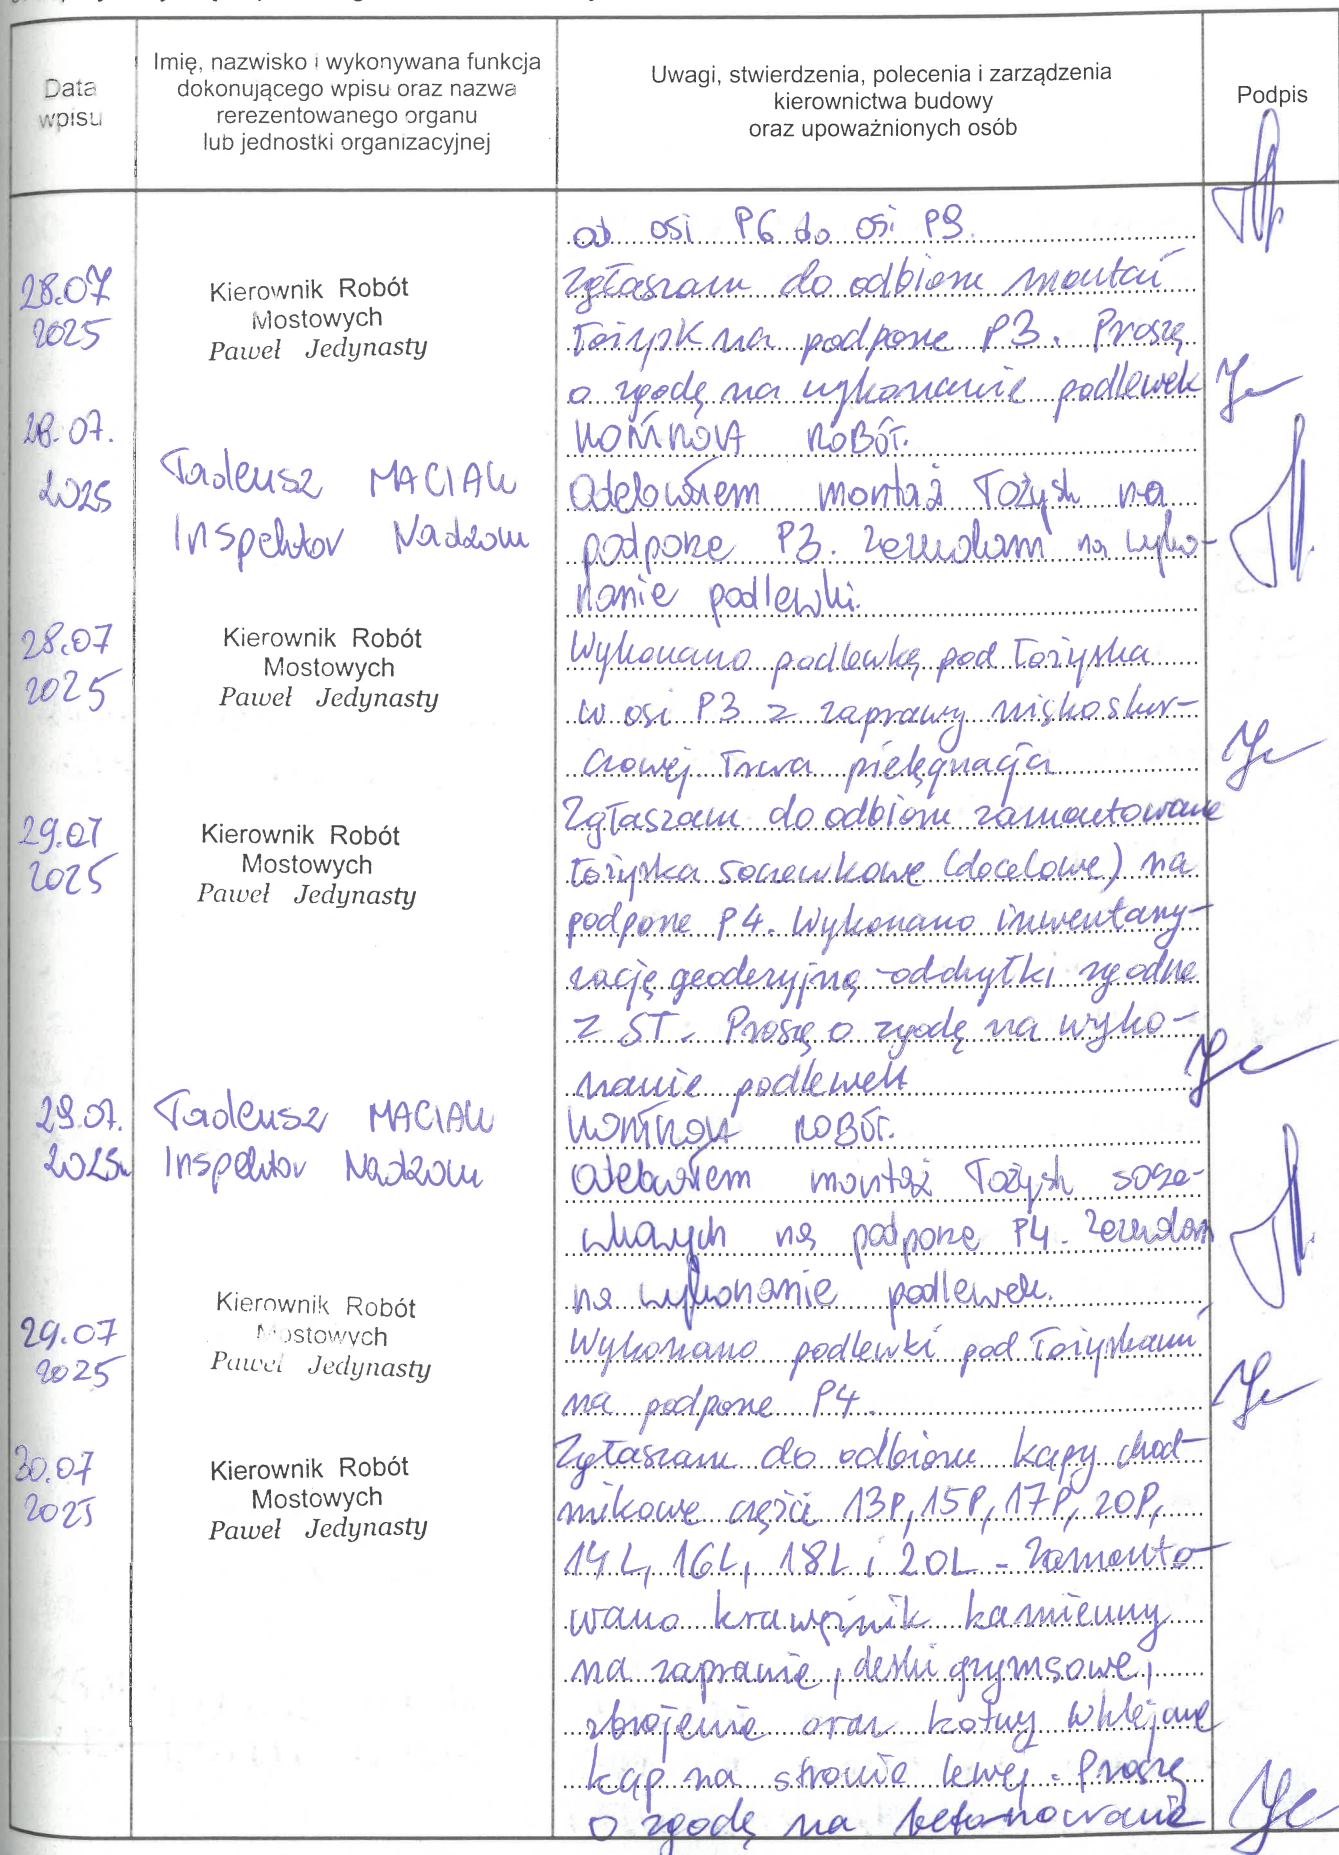 Data
wpisu
Imię, nazwisko i wykonywana funkcja
dokonującego wpisu oraz nazwa
rerezentowanego organu
lub jednostki organizacyjnej
Uwagi, stwierdzenia, polecenia i zarządzenia
kierownictwa budowy
oraz upoważnionych osób
Podpis
od osi P6 do osi P9.
28.07
2025
Kierownik Robót
Mostowych
Paweł Jedynasty
Zgłaszam do odbioru montaż
łożysk na podporze P3. Proszę
o zgodę na wykonanie podlewek
28.07.
2025
Tadeusz MACIAK
Inspektor Nadzoru
KONTROLA ROBÓT.
Odebrałem montaż łożysk na
podporze P3. Zezwalam na wyko-
nanie podlewki.
28.07
2025
Kierownik Robót
Mostowych
Paweł Jedynasty
Wykonano podlewkę pod łożyska
w osi P3 z zaprawy niskoskur-
czowej Trwa pielęgnacja
29.07
2025
Kierownik Robót
Mostowych
Paweł Jedynasty
Zgłaszam do odbioru zamontowane
łożyska soczewkowe (docelowe) na
podporze P4. Wykonano inwentary-
zację geodezyjną - odchyłki zgodne
z ST. Proszę o zgodę na wyko-
nanie podlewek
29.07.
2025r
Tadeusz MACIAK
Inspektor Nadzoru
KONTROLA ROBÓT.
Odebrałem montaż łożysk socze-
wkowych na podporze P4. Zezwalam
na wykonanie podlewek.
29.07
2025
Kierownik Robót
Mostowych
Paweł Jedynasty
Wykonano podlewki pod łożyskami
na podporze P4.
30.07
2025
Kierownik Robót
Mostowych
Paweł Jedynasty
Zgłaszam do odbioru kapy chod-
nikowe części 13P, 15P, 17P, 20P,
14L, 16L, 18L i 20L - Zamonto-
wano krawężnik kamienny
na zaprawie, deski gzymsowe,
zbrojenie oraz kotwy wklejane
kap na stronie lewej. Proszę
o zgodę na betonowanie